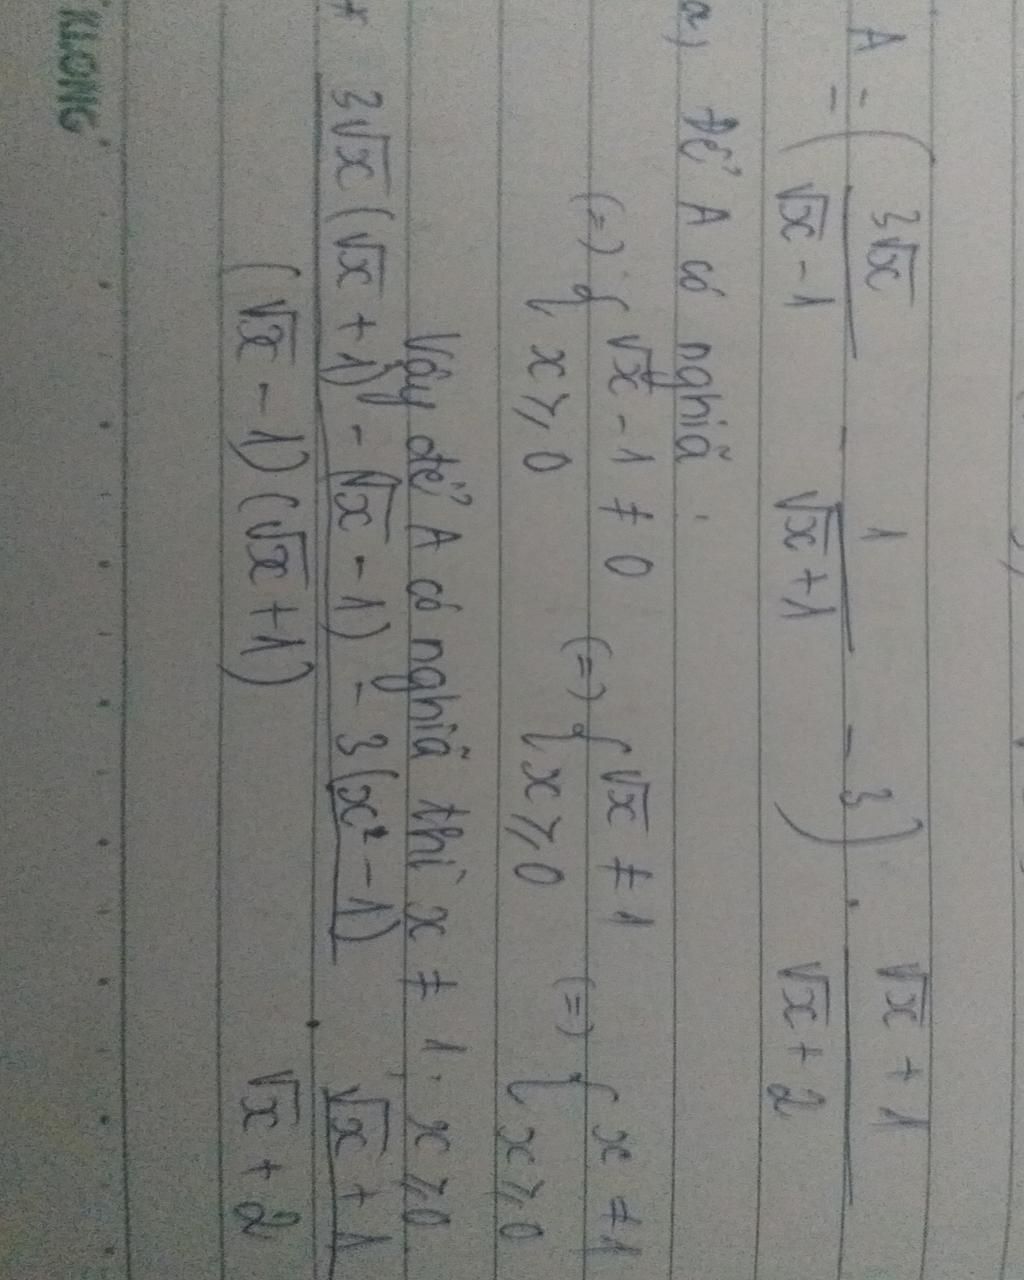 A = ( 3√x / √x - 1 - 1 / √x + 1 - 3 ) . √x + 1 / √x + 2
a) Để A có nghiã :
(=) { √x - 1 ≠ 0 (=) { √x ≠ 1 (=) { x ≠ 1
{ x ⩾ 0 { x ⩾ 0 { x ⩾ 0
Vậy để A có nghiã thì x ≠ 1, x ⩾ 0
* 3√x (√x + 1) - (√x - 1) - 3(x² - 1) / (√x - 1)(√x + 1) . √x + 1 / √x + 2
KLONG